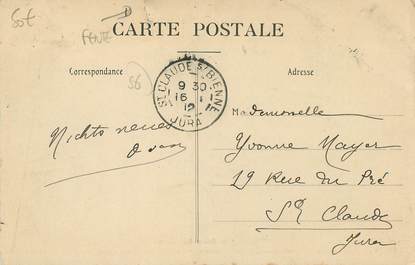 55€
FEVE
CARTE POSTALE
Correspondance
Adresse
56
ST CLAUDE S/BIENNE
9 30
16 1
12
JURA
Nichts neues
Mademoiselle
Yvonne Mayer
19 Rue du Pré
St Claude
Jura